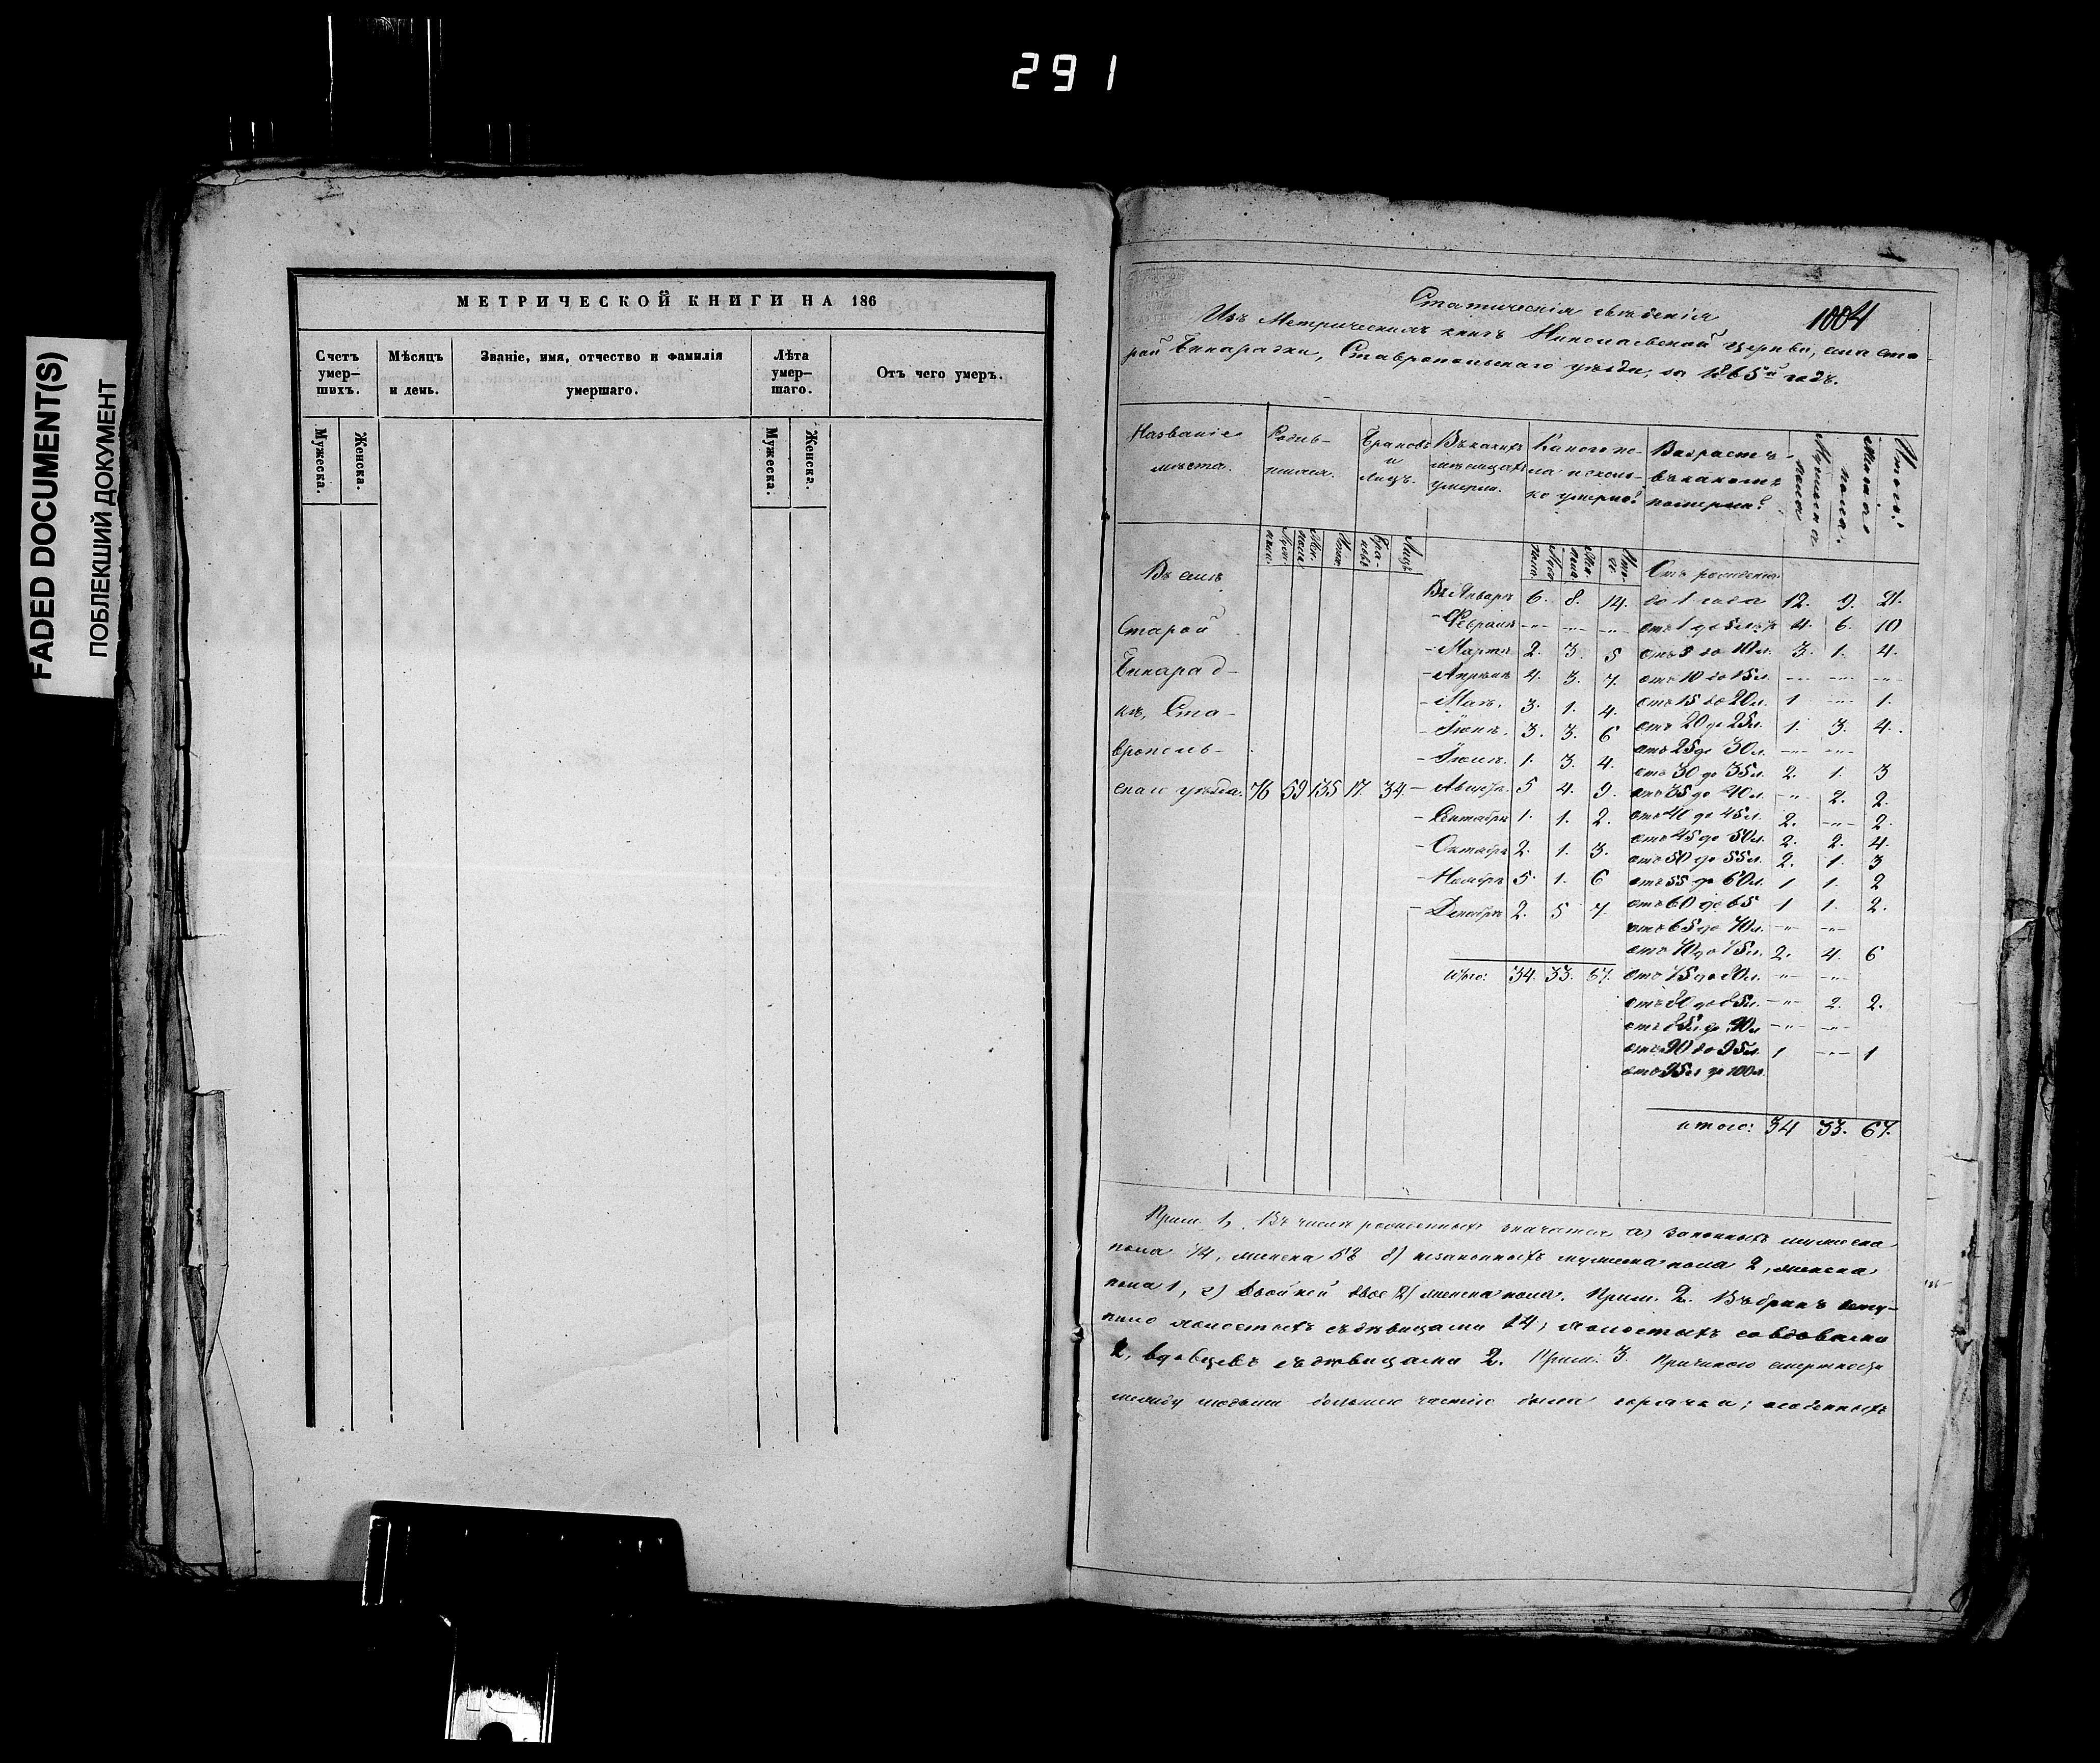 291
FADED DOCUMENT(S)
ПОБЛЕКШИЙ ДОКУМЕНТ
МЕТРИЧЕСКОЙ КНИГИ НА 186
Счетъ умер-шихъ. Мѣсяцъ и день. Званіе, имя, отчество и фамилія умершаго. Лѣта умер-шаго. Отъ чего умеръ.
Мужеска. Женска. Мужеска. Женска.
1004
Статическія свѣденія
Изъ Метрическихъ книгъ Николаевской церкви, села Ста-
рой Бинарадки, Ставропольскаго уѣзда, за 1865й годъ.
Названіе мѣста. Родив-шихся. Браковъ и Лицъ. Въ какихъ мѣсяцахъ умерли. Какого по-ла и сколь-ко умерло? Возрастъ въ какомъ померли? Мужеска пола Женска пола. Итого:
Въ селѣ
Старой
Бинарад-
кѣ, Ста-
врополь-
скаго уѣзда. 76 59 135 17. 34.
Въ Январѣ 6. 8. 14.
- Февралѣ -"- -"- -"-
- Мартѣ 2. 3. 5
- Апрѣлѣ 4. 3. 7.
- Маѣ. 3. 1. 4.
- Іюнѣ. 3. 3. 6
- Іюлѣ. 1. 3. 4.
- Августѣ. 5 4. 9.
- Сентябрѣ 1. 1. 2.
- Октябрѣ 2. 1. 3.
- Ноябрѣ 5. 1. 6
- Декабрѣ 2. 5 7.
итого: 34. 33. 67.
Отъ рожденія
до 1 года 12. 9. 21.
отъ 1 до 5 лѣтъ 4. 6. 10
отъ 5 до 10 л. 3. 1. 4.
отъ 10 до 15 л. -"- -"- -"-
отъ 15 до 20 л. 1 -"- 1.
отъ 20 до 25 л. 1. 3. 4.
отъ 25 до 30 л. -"- -"-
отъ 30 до 35 л. 2. 1. 3
отъ 35 до 40 л. -"- 2. 2.
отъ 40 до 45 л. 2. -"- 2.
отъ 45 до 50 л. 2. 2. 4.
отъ 50 до 55 л. 2. 1. 3
отъ 55 до 60 л. 1 1. 2
отъ 60 до 65 1 1. 2.
отъ 65 до 70 л. -"- -"-
отъ 70 до 75 л. 2. 4. 6
отъ 75 до 80 л. -"- -"-
отъ 80 до 85 л. -"- 2. 2.
отъ 85 л. до 90 л -"- -"-
отъ 90 до 95 л. 1 -"- 1
отъ 95 л до 100 л.
итого: 34 33. 67.
Прим. 1, Въ числѣ рожденныхъ значатся а) законныхъ мужеска
пола 74, женска 58 б) незаконныхъ мужеска пола 2, женска
пола 1, г) Двойней двое (2) женска пола. Прим. 2. Въ бракъ всту-
пило холостыхъ съ дѣвицами 14, холостыхъ со вдовами
2, вдовцевъ съ дѣвицами 2. Прим. 3. Причиною смертности
между людьми большею частію была горячка; особенныхъ